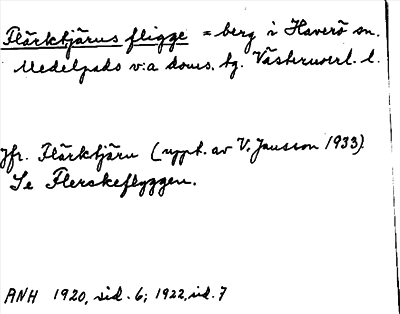 Fläcktjärns fligge = berg i Haverö sn.
Medelpads v:a doms. tg. Västernorrl. l.
Jfr. Flärktjärn (uppt. av V. Jansson 1933).
Se Flerskeflyggen.
ANH 1920, sid. 6; 1922, sid. 7